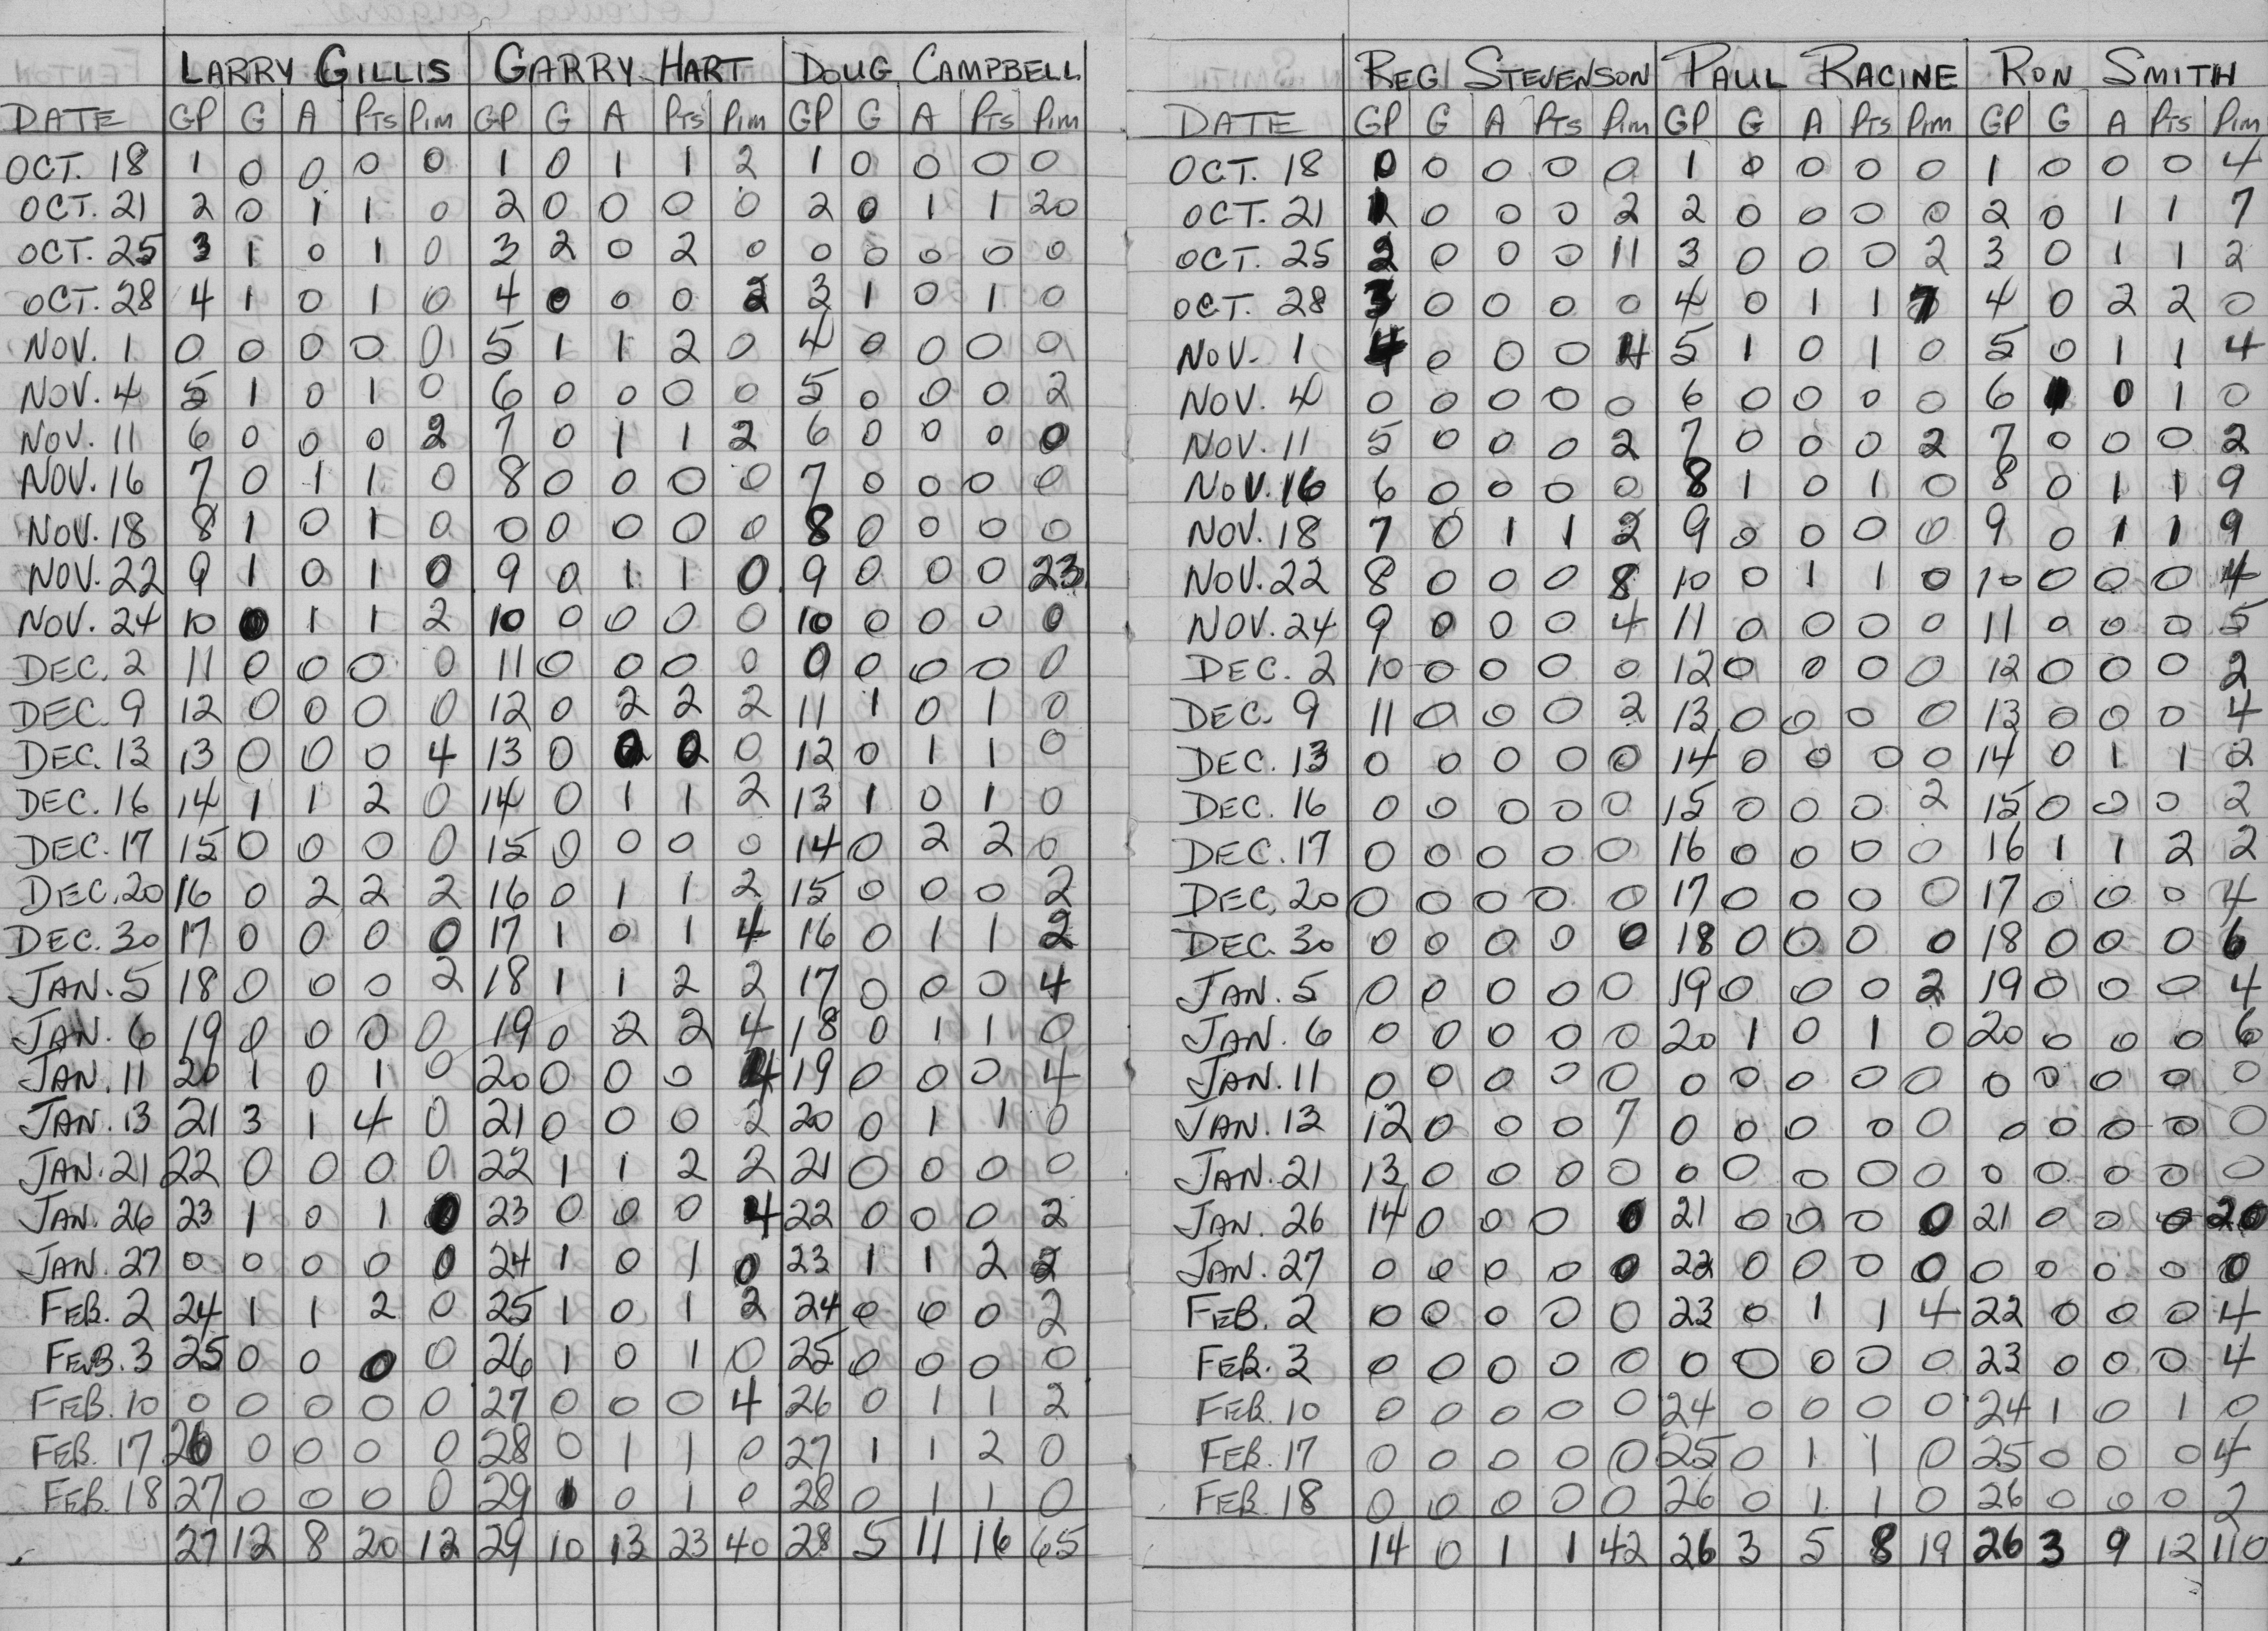 LARRY GILLIS GARRY HART DOUG CAMPBELL
DATE GP G A PTS PIM GP G A PTS PIM GP G A PTS PIM
OCT. 18 1 0 0 0 0 1 0 1 1 2 1 0 0 0 0
OCT. 21 2 0 1 1 0 2 0 0 0 0 2 0 1 1 20
OCT. 25 3 1 0 1 0 3 2 0 2 0 0 0 0 0 0
OCT. 28 4 1 0 1 0 4 0 0 0 2 3 1 0 1 0
NOV. 1 0 0 0 0 0 5 1 1 2 0 4 0 0 0 0
NOV. 4 5 1 0 1 0 6 0 0 0 0 5 0 0 0 2
NOV. 11 6 0 0 0 2 7 0 1 1 2 6 0 0 0 0
NOV. 16 7 0 1 1 0 8 0 0 0 0 7 0 0 0 0
NOV. 18 8 1 0 1 0 0 0 0 0 0 8 0 0 0 0
NOV. 22 9 1 0 1 0 9 0 1 1 0 9 0 0 0 23
NOV. 24 10 0 1 1 2 10 0 0 0 0 10 0 0 0 0
DEC. 2 11 0 0 0 0 11 0 0 0 0 0 0 0 0 0
DEC. 9 12 0 0 0 0 12 0 2 2 2 11 1 0 1 0
DEC. 13 13 0 0 0 4 13 0 2 2 0 12 0 1 1 0
DEC. 16 14 1 1 2 0 14 0 1 1 2 13 1 0 1 0
DEC. 17 15 0 0 0 0 15 0 0 0 0 14 0 2 2 0
DEC. 20 16 0 2 2 2 16 0 1 1 2 15 0 0 0 2
DEC. 30 17 0 0 0 0 17 1 0 1 4 16 0 1 1 2
JAN. 5 18 0 0 0 2 18 1 1 2 2 17 0 0 0 4
JAN. 6 19 0 0 0 0 19 0 2 2 4 18 0 1 1 0
JAN. 11 20 1 0 1 0 20 0 0 0 4 19 0 0 0 4
JAN. 13 21 3 1 4 0 21 0 0 0 2 20 0 1 1 0
JAN. 21 22 0 0 0 0 22 1 1 2 2 21 0 0 0 0
JAN. 26 23 1 0 1 0 23 0 0 0 4 22 0 0 0 2
JAN. 27 0 0 0 0 0 24 1 0 1 0 23 1 1 2 2
FEB. 2 24 1 1 2 0 25 1 0 1 2 24 0 0 0 2
FEB. 3 25 0 0 0 0 26 1 0 1 0 25 0 0 0 0
FEB. 10 0 0 0 0 0 27 0 0 0 4 26 0 1 1 2
FEB. 17 26 0 0 0 0 28 0 1 1 0 27 1 1 2 0
FEB. 18 27 0 0 0 0 29 1 0 1 0 28 0 1 1 0
27 12 8 20 12 29 10 13 23 40 28 5 11 16 65
REG STEVENSON PAUL RACINE RON SMITH
DATE GP G A PTS PIM GP G A PTS PIM GP G A PTS PIM
OCT. 18 0 0 0 0 0 1 0 0 0 0 1 0 0 0 4
OCT. 21 1 0 0 0 2 2 0 0 0 0 2 0 1 1 7
OCT. 25 2 0 0 0 11 3 0 0 0 2 3 0 1 1 2
OCT. 28 3 0 0 0 0 4 0 1 1 7 4 0 2 2 0
NOV. 1 4 0 0 0 4 5 1 0 1 0 5 0 1 1 4
NOV. 4 0 0 0 0 0 6 0 0 0 0 6 1 0 1 0
NOV. 11 5 0 0 0 2 7 0 0 0 2 7 0 0 0 2
NOV. 16 6 0 0 0 0 8 1 0 1 0 8 0 1 1 9
NOV. 18 7 0 1 1 2 9 0 0 0 0 9 0 1 1 9
NOV. 22 8 0 0 0 8 10 0 1 1 0 10 0 0 0 4
NOV. 24 9 0 0 0 4 11 0 0 0 0 11 0 0 0 5
DEC. 2 10 0 0 0 0 12 0 0 0 0 12 0 0 0 2
DEC. 9 11 0 0 0 2 13 0 0 0 0 13 0 0 0 4
DEC. 13 0 0 0 0 0 14 0 0 0 0 14 0 1 1 2
DEC. 16 0 0 0 0 0 15 0 0 0 2 15 0 0 0 2
DEC. 17 0 0 0 0 0 16 0 0 0 0 16 1 1 2 2
DEC. 20 0 0 0 0 0 17 0 0 0 0 17 0 0 0 4
DEC. 30 0 0 0 0 0 18 0 0 0 0 18 0 0 0 6
JAN. 5 0 0 0 0 0 19 0 0 0 2 19 0 0 0 4
JAN. 6 0 0 0 0 0 20 1 0 1 0 20 0 0 0 6
JAN. 11 0 0 0 0 0 0 0 0 0 0 0 0 0 0 0
JAN. 13 12 0 0 0 7 0 0 0 0 0 0 0 0 0 0
JAN. 21 13 0 0 0 0 0 0 0 0 0 0 0 0 0 0
JAN. 26 14 0 0 0 0 21 0 0 0 0 21 0 0 0 20
JAN. 27 0 0 0 0 0 22 0 0 0 0 0 0 0 0 0
FEB. 2 0 0 0 0 0 23 0 1 1 4 22 0 0 0 4
FEB. 3 0 0 0 0 0 0 0 0 0 0 23 0 0 0 4
FEB. 10 0 0 0 0 0 24 0 0 0 0 24 1 0 1 0
FEB. 17 0 0 0 0 0 25 0 1 1 0 25 0 0 0 4
FEB. 18 0 0 0 0 0 26 0 1 1 0 26 0 0 0 2
14 0 1 1 42 26 3 5 8 19 26 3 9 12 110